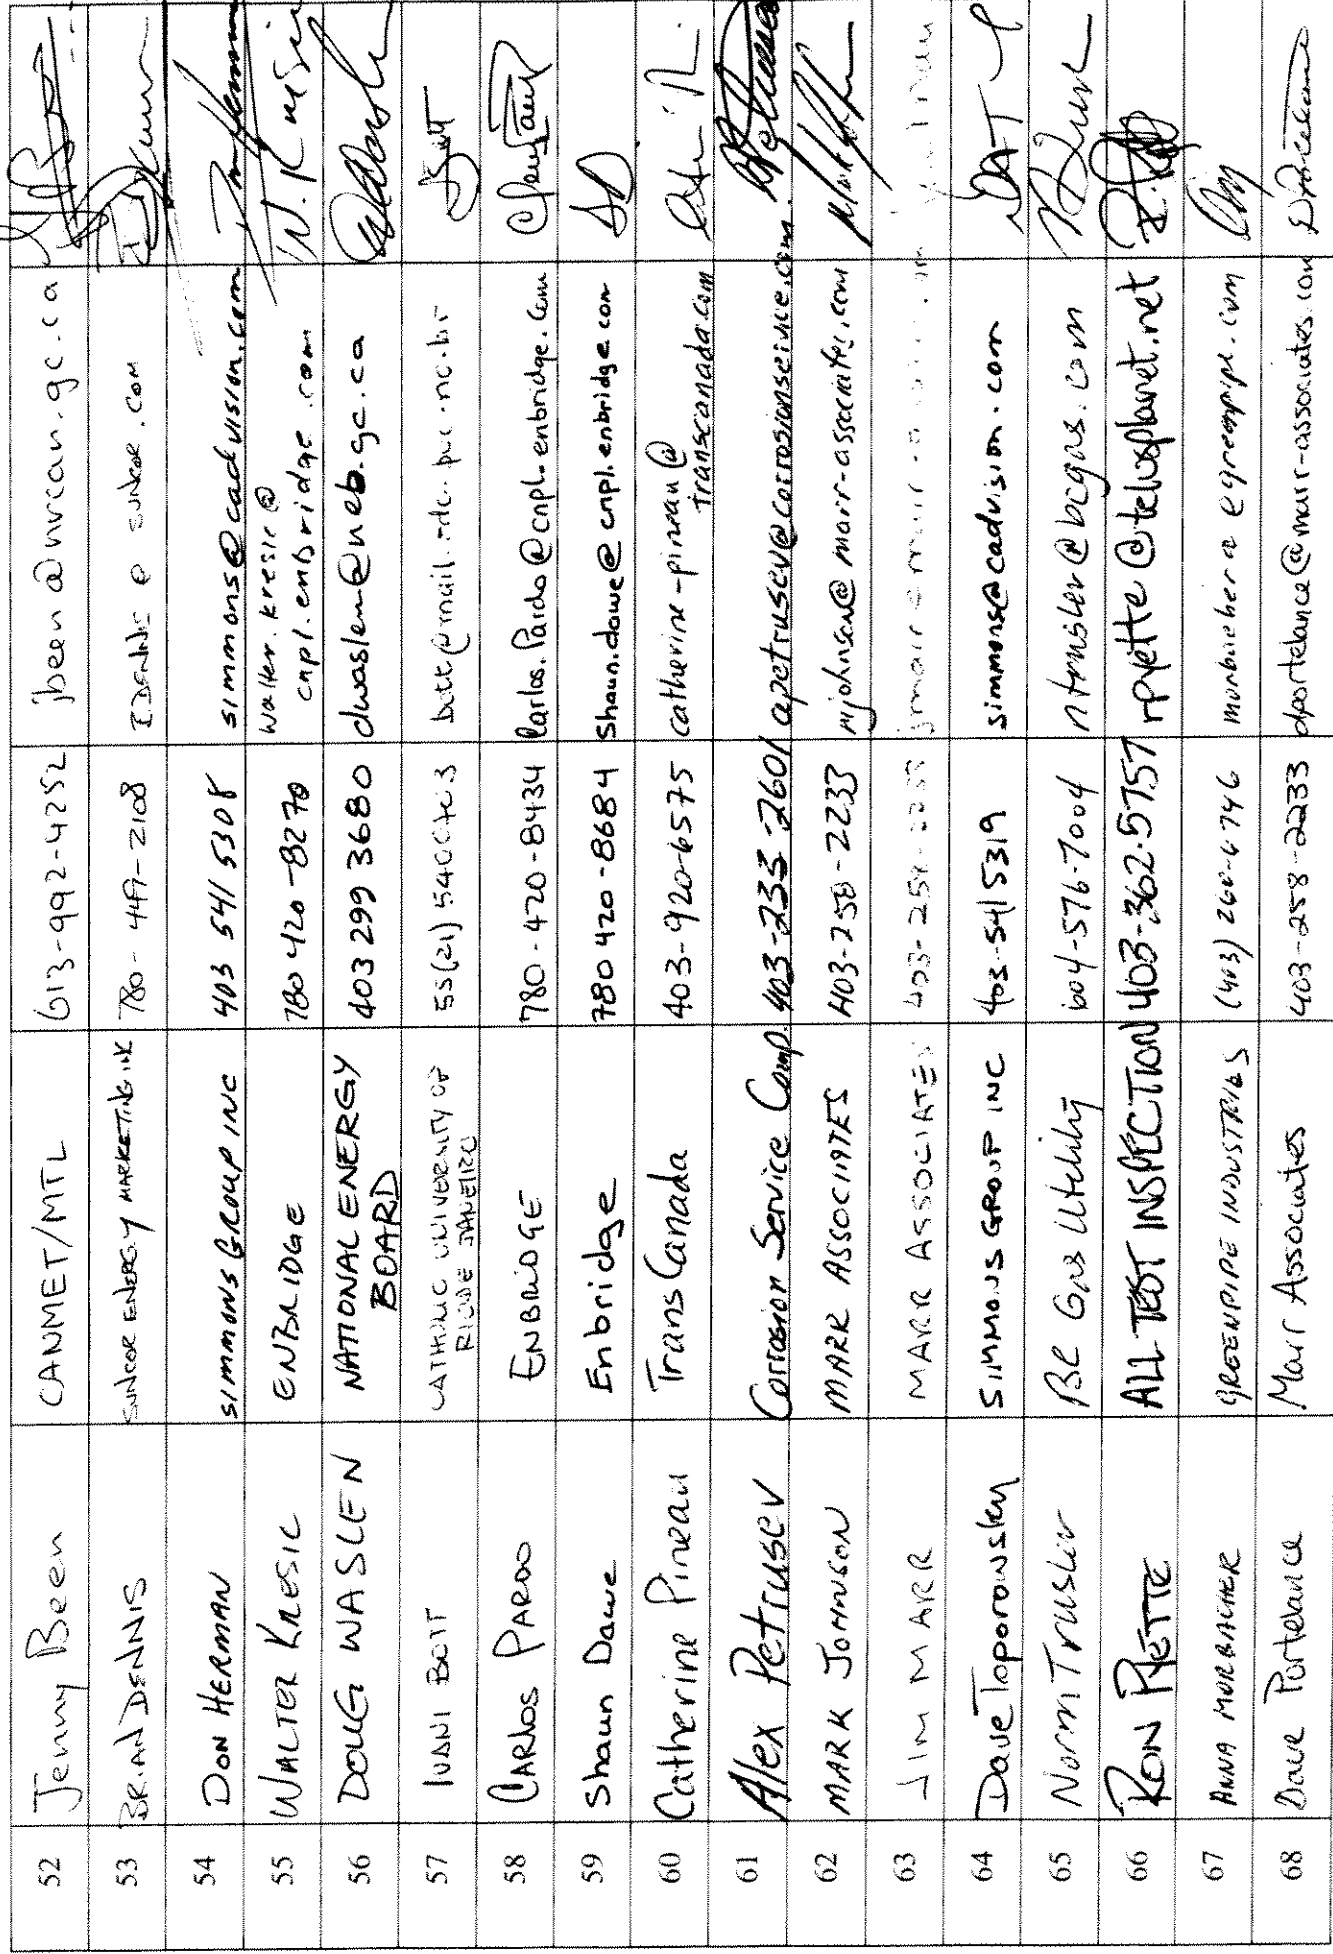 52 Jenny Been CANMET/MTL 613-992-4252 jbeen@nrcan.gc.ca
53 BRIAN DENNIS SUNCOR ENERGY MARKETING INC 780-449-2108 @ suncor.com
54 DON HERMAN SIMMONS GROUP INC 403 541 5308 simmons@cadvision.com
55 WALTER KRESIC ENBRIDGE 780 420-8270 walter.kresic@
cnpl.enbridge.com W. Kresic
56 DOUG WASLEN NATIONAL ENERGY
BOARD 403 299 3680 dwaslen@neb.gc.ca
57 IVANI BOTT CATHOLIC UNIVERSITY OF
RIO DE JANEIRO 55(21)
58 CARLOS PARDO ENBRIDGE 780-420-8434 Carlos.Pardo@cnpl.enbridge.com
59 Shaun Dawe Enbridge 780 420-8684 shaun.dawe@cnpl.enbridge.com SD
60 Catherine Pineau TransCanada 403-920-6575 catherine-pineau@
transcanada.com
61 Alex Petrusev Corrosion Service Comp. 403-233-2601
62 MARK JOHNSON MARR ASSOCIATES 403-258-2233 mjohnson@marr-associates.com
63 JIM MARR MARR ASSOCIATES 403-258-2233
64 Dave Toporowsky SIMMONS GROUP INC 403-541 5319 simmons@cadvision.com
65 Norm Trusler BC Gas Utility 604-576-7004 ntrusler@bcgas.com
66 RON PYETTE ALL TEST INSPECTION 403-362-5757 rpyette@telusplanet.net
67 ANNA MORBACHER GREENPIPE INDUSTRIES
68 Dave Portelance Marr Associates 403-258-2233 dportelance@marr-associates.com